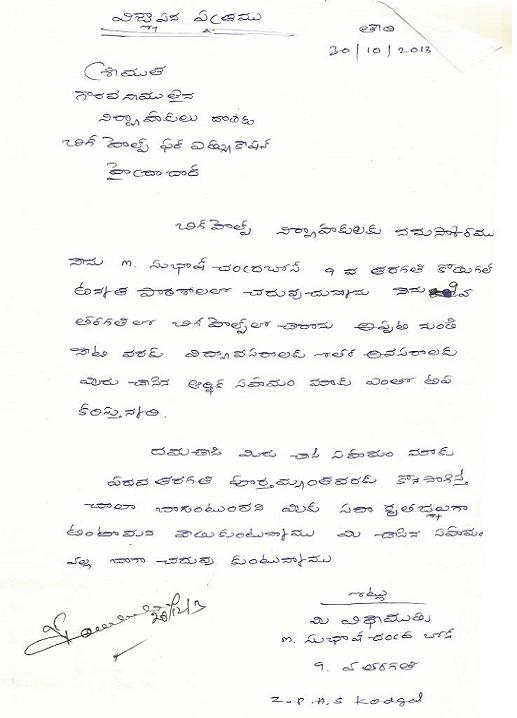 విజ్ఞాపన పత్రము
తాది
30/10/2013
శ్రీమతి
గౌరవనీయులైన
నిర్వాహకులు
బిగ్ హెల్ప్ ఫర్ ఎడ్యుకేషన్
హైదరాబాద్
బిగ్ హెల్ప్ నిర్వాహకులకు నమస్కారము
నేను m. సుభాష్ చంద్రబోస్ 9 వ తరగతి కోడుగల్
ఉన్నత పాఠశాలలో చదువుచున్నాను నేను
తరగతి లో బిగ్ హెల్ప్ లో చేరాను అప్పటి నుంచి
నేటి వరకు విద్యావసరాలకు ఇతర అవసరాలకు
మీరు చేసిన ఆర్థిక సహాయం మాకు ఎంతో ఉప
కరిస్తున్నాది.
దయచేసి మీరు చేసే సహాయం మాకు
పదవ తరగతి పూర్తయ్యేంతవరకు కొనసాగిస్తే
చాలా బాగుంటుందని మీకు సదా కృతజ్ఞులుగా
ఉంటామని తెలుపుకుంటున్నాము మీ చేసిన సహాయం
వల్ల బాగా చదువు కుంటున్నాము
ఇట్లు
మీ విధేయుడు
m. సుభాష్ చంద్ర బోస్
9. వ తరగతి
Z.P.H.S Kodgal
28/12/3